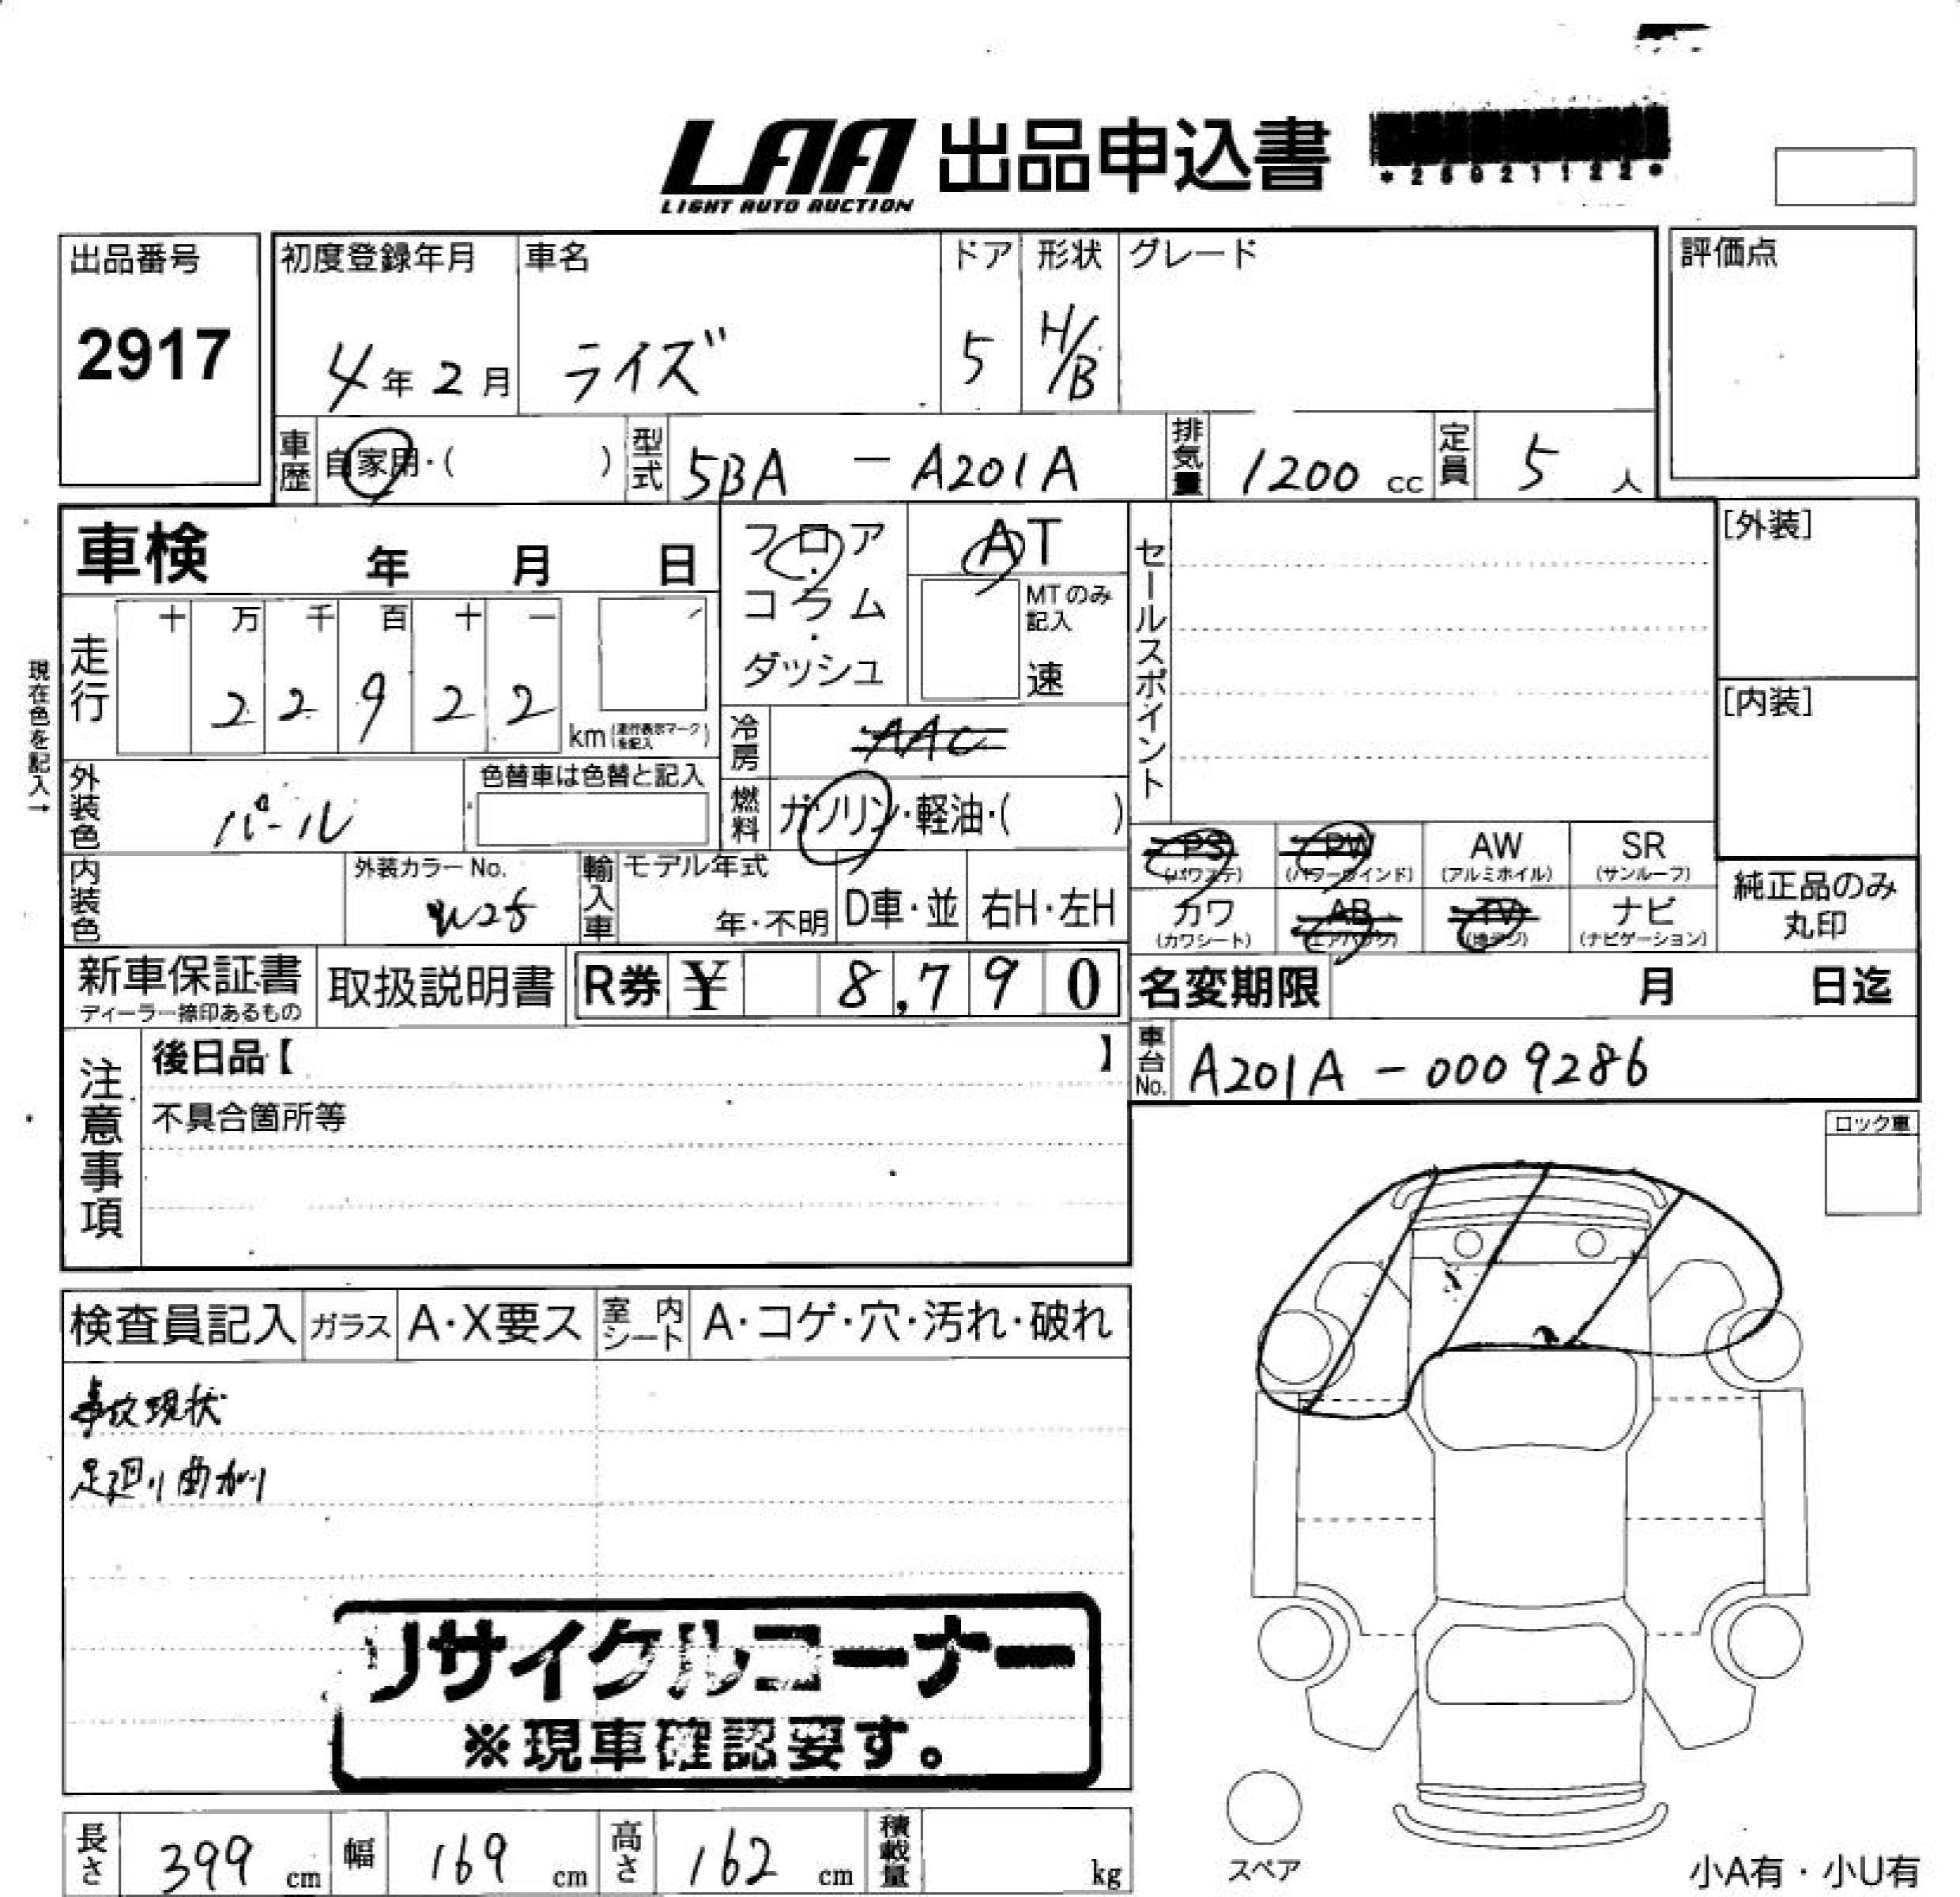 LAA 出品申込書
LIGHT AUTO AUCTION
出品番号
2917
初度登録年月
4年2月
車名
ライズ
ドア
5
形状
H/B
グレード
評価点
車歴 自家用・( )
型式 5BA - A201A
排気量 1200 cc
定員 5 人
車検 年 月 日
フロア・コラム・ダッシュ
AT
MTのみ記入
速
セールスポイント
[外装]
[内装]
現在色を記入→
走行
十 万 千 百 十 一
2 2 9 2 2
km (走行表示マークを記入)
冷房 AAC
燃料 ガソリン・軽油・( )
外装色 パール
色替車は色替と記入
内装色
外装カラーNo.
W25
輸入車
モデル年式
年・不明
D車・並
右H・左H
PS (パワステ)
PW (パワーウインド)
AW (アルミホイル)
SR (サンルーフ)
カワ (カワシート)
AB (エアバッグ)
TV (地デジ)
ナビ (ナビゲーション)
純正品のみ
丸印
新車保証書
ディーラー捺印あるもの
取扱説明書
R券 ¥ 8,790
名変期限 月 日迄
車台No. A201A - 0009286
注意事項
後日品【 】
不具合箇所等
ロック車
検査員記入
ガラス A・X要ス
室内シート A・コゲ・穴・汚れ・破れ
事故現状
足廻り曲がり
リサイクルコーナー
※現車確認要す。
長さ 399 cm
幅 169 cm
高さ 162 cm
積載量 kg
スペア
小A有・小U有